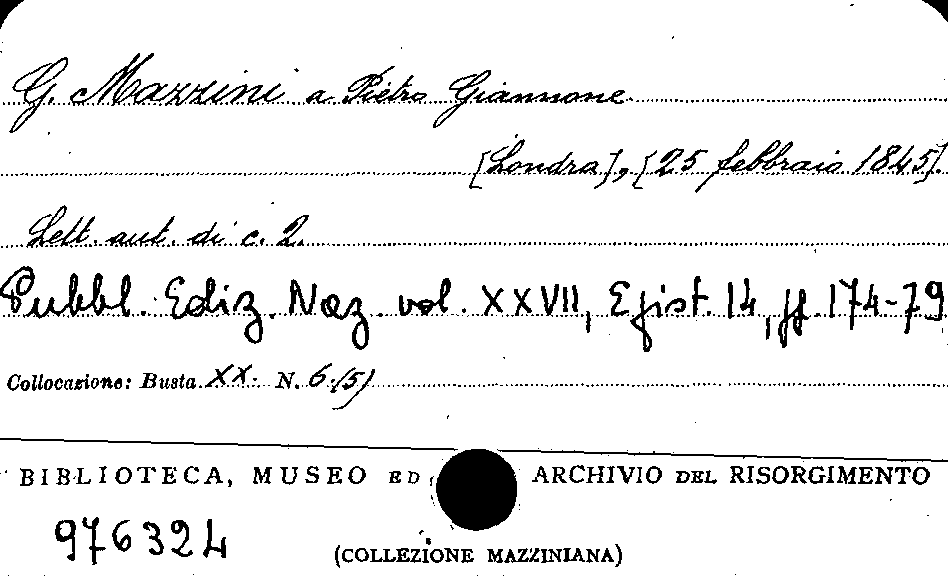 G. Mazzini a Pietro Giannone
[Londra], [25 febbraio 1845].
Lett. aut. di c. 2.
Pubbl. Ediz. Naz. vol. XXVII, Epist. 14, pp. 174-79
Collocazione: Busta XX. N. 6 (5)
BIBLIOTECA, MUSEO ED ARCHIVIO DEL RISORGIMENTO
976324
(COLLEZIONE MAZZINIANA)